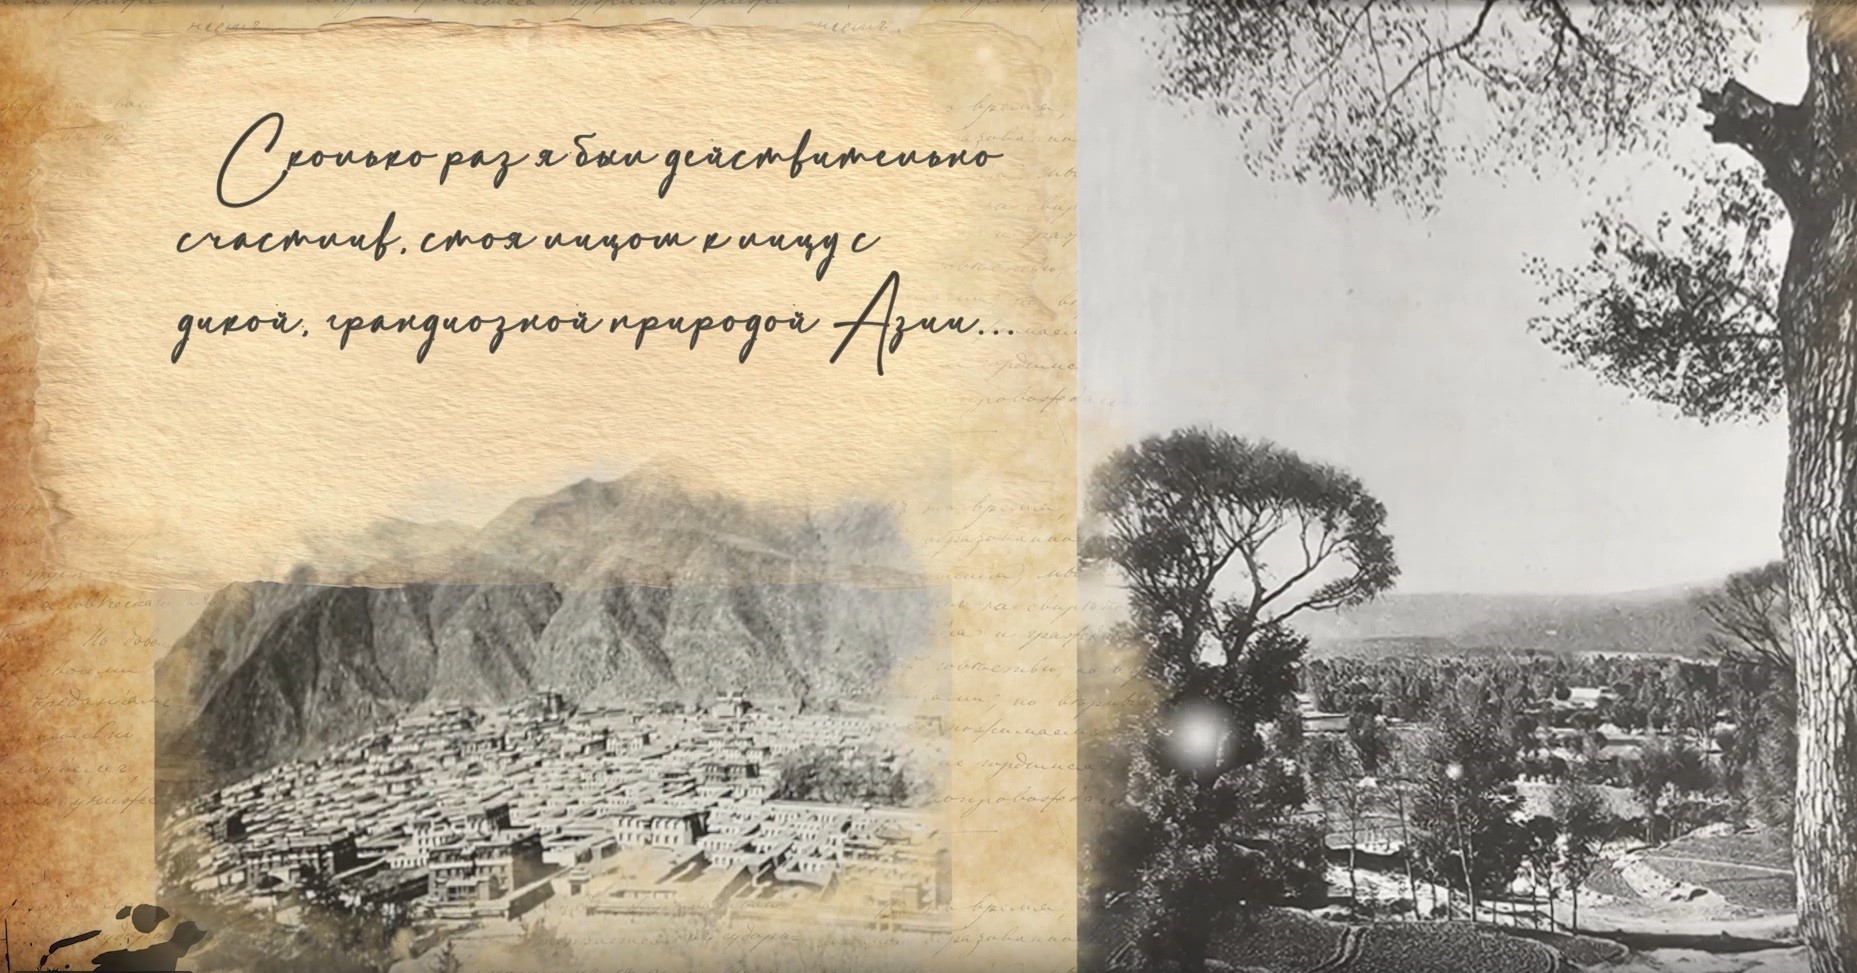 Сколько раз я был действительно
счастлив, стоя лицом к лицу с
дикой, грандиозной природой Азии...